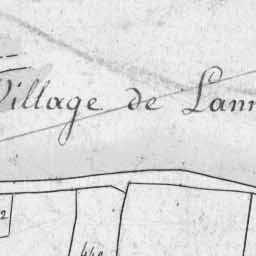 Village de Lann
2
440